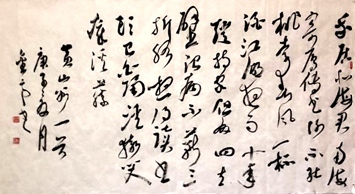 我居北海君南海
寄雁傳書謝不能
桃李春風一杯
酒江湖夜雨十年
燈持家但有四立
壁治病不蘄三
折肱想得讀書
頭已白隔溪猿哭
瘴溪藤
黃山谷一首
庚子月